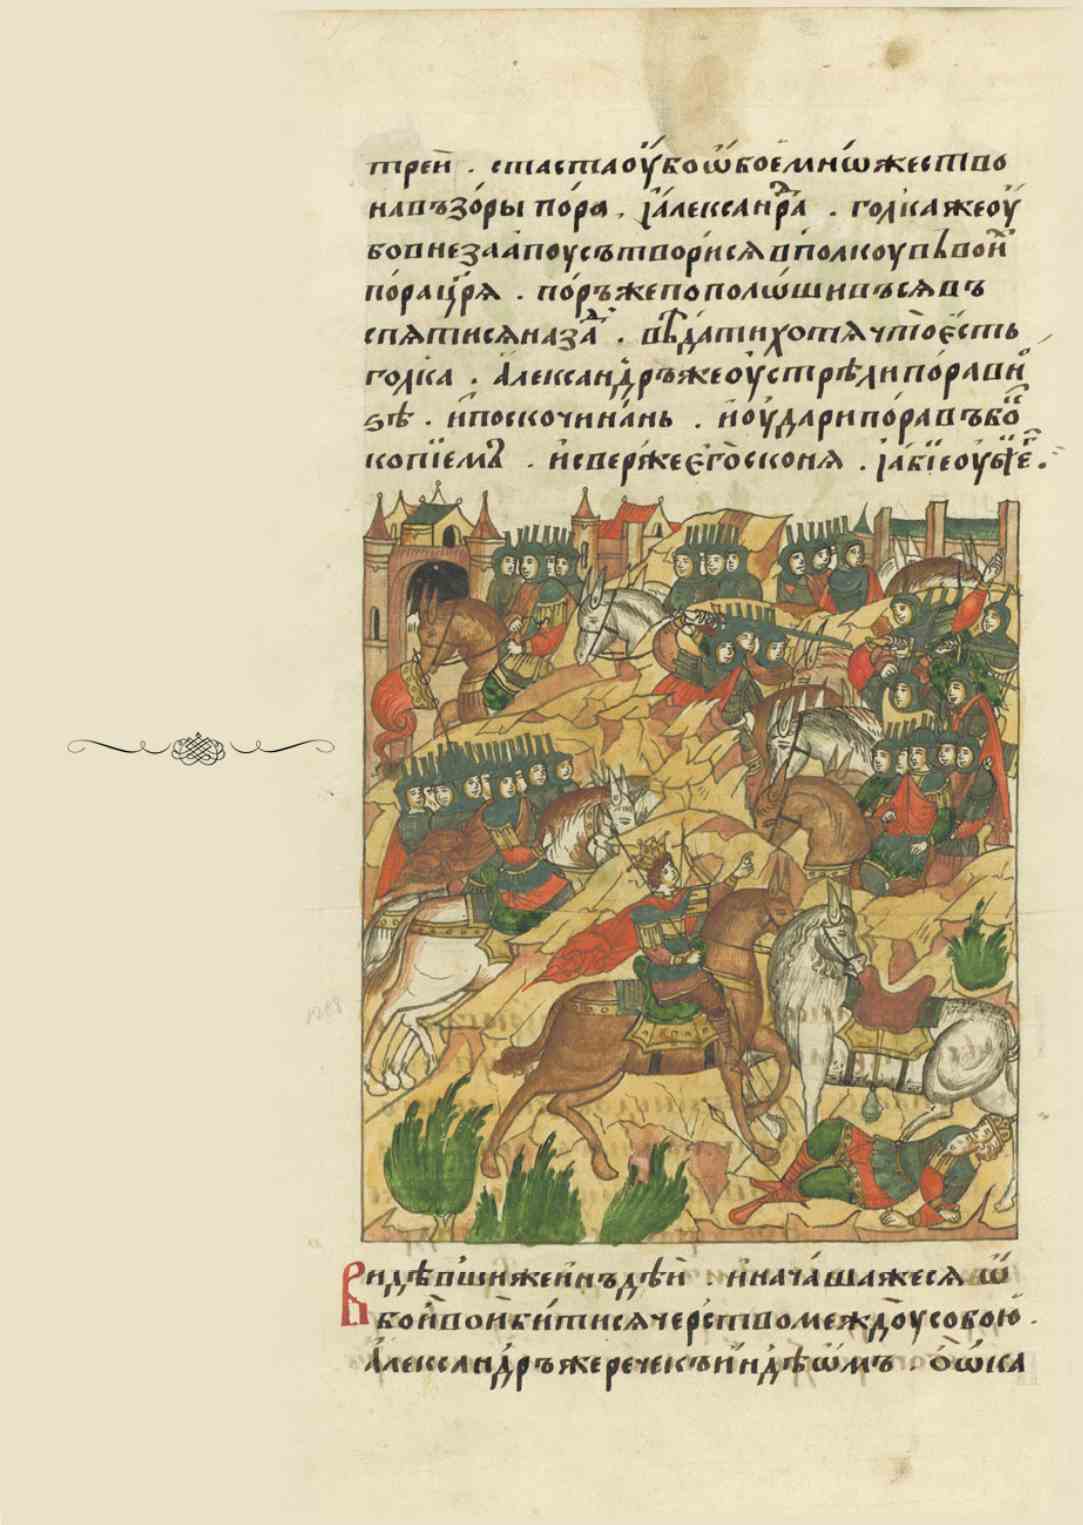 трей . стастаоу҆боѿбоемнѡжество
навъзо́ры по́ра . ꙗ҆алексанⷣра . голкажеоу҆
бовнезаапоусътворисѧ вполкоупѣвой
по́рацр҃ѧ . по́ръжепополѡшивъсѧвъ
спѧтисѧназаⷣ . вѣ́датихотѧчтоє҆сть
голка . А҆леѯандръжеоу҆стрѣлипо́равни
ѕѣ . и҆поскочина́нь . и҆оу҆дарипо́равъбо
копїемъ . и҆сверже є҆го̀сконѧ . ꙗ҆абїеоу҆бїе҆ .
Видѣвшижеи҆ндѣи . инача́шажесѧ ѿ
бойвойби́тисѧчерствомеждоусобою .
А҆лександръжеречекъи҆ндѣѡмъ . ѻ҆ѡ҆ка